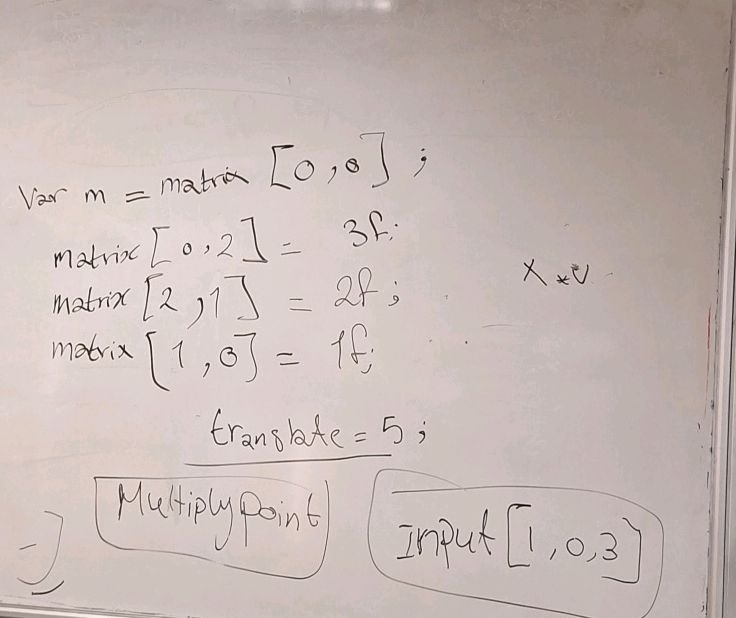 Var m = matrix [0,0];
matrix [0,2] = 3f;
matrix [2,1] = 2f;
matrix [1,0] = 1f;
X * v
translate = 5;
MultiplyPoint
Input [1,0,3]